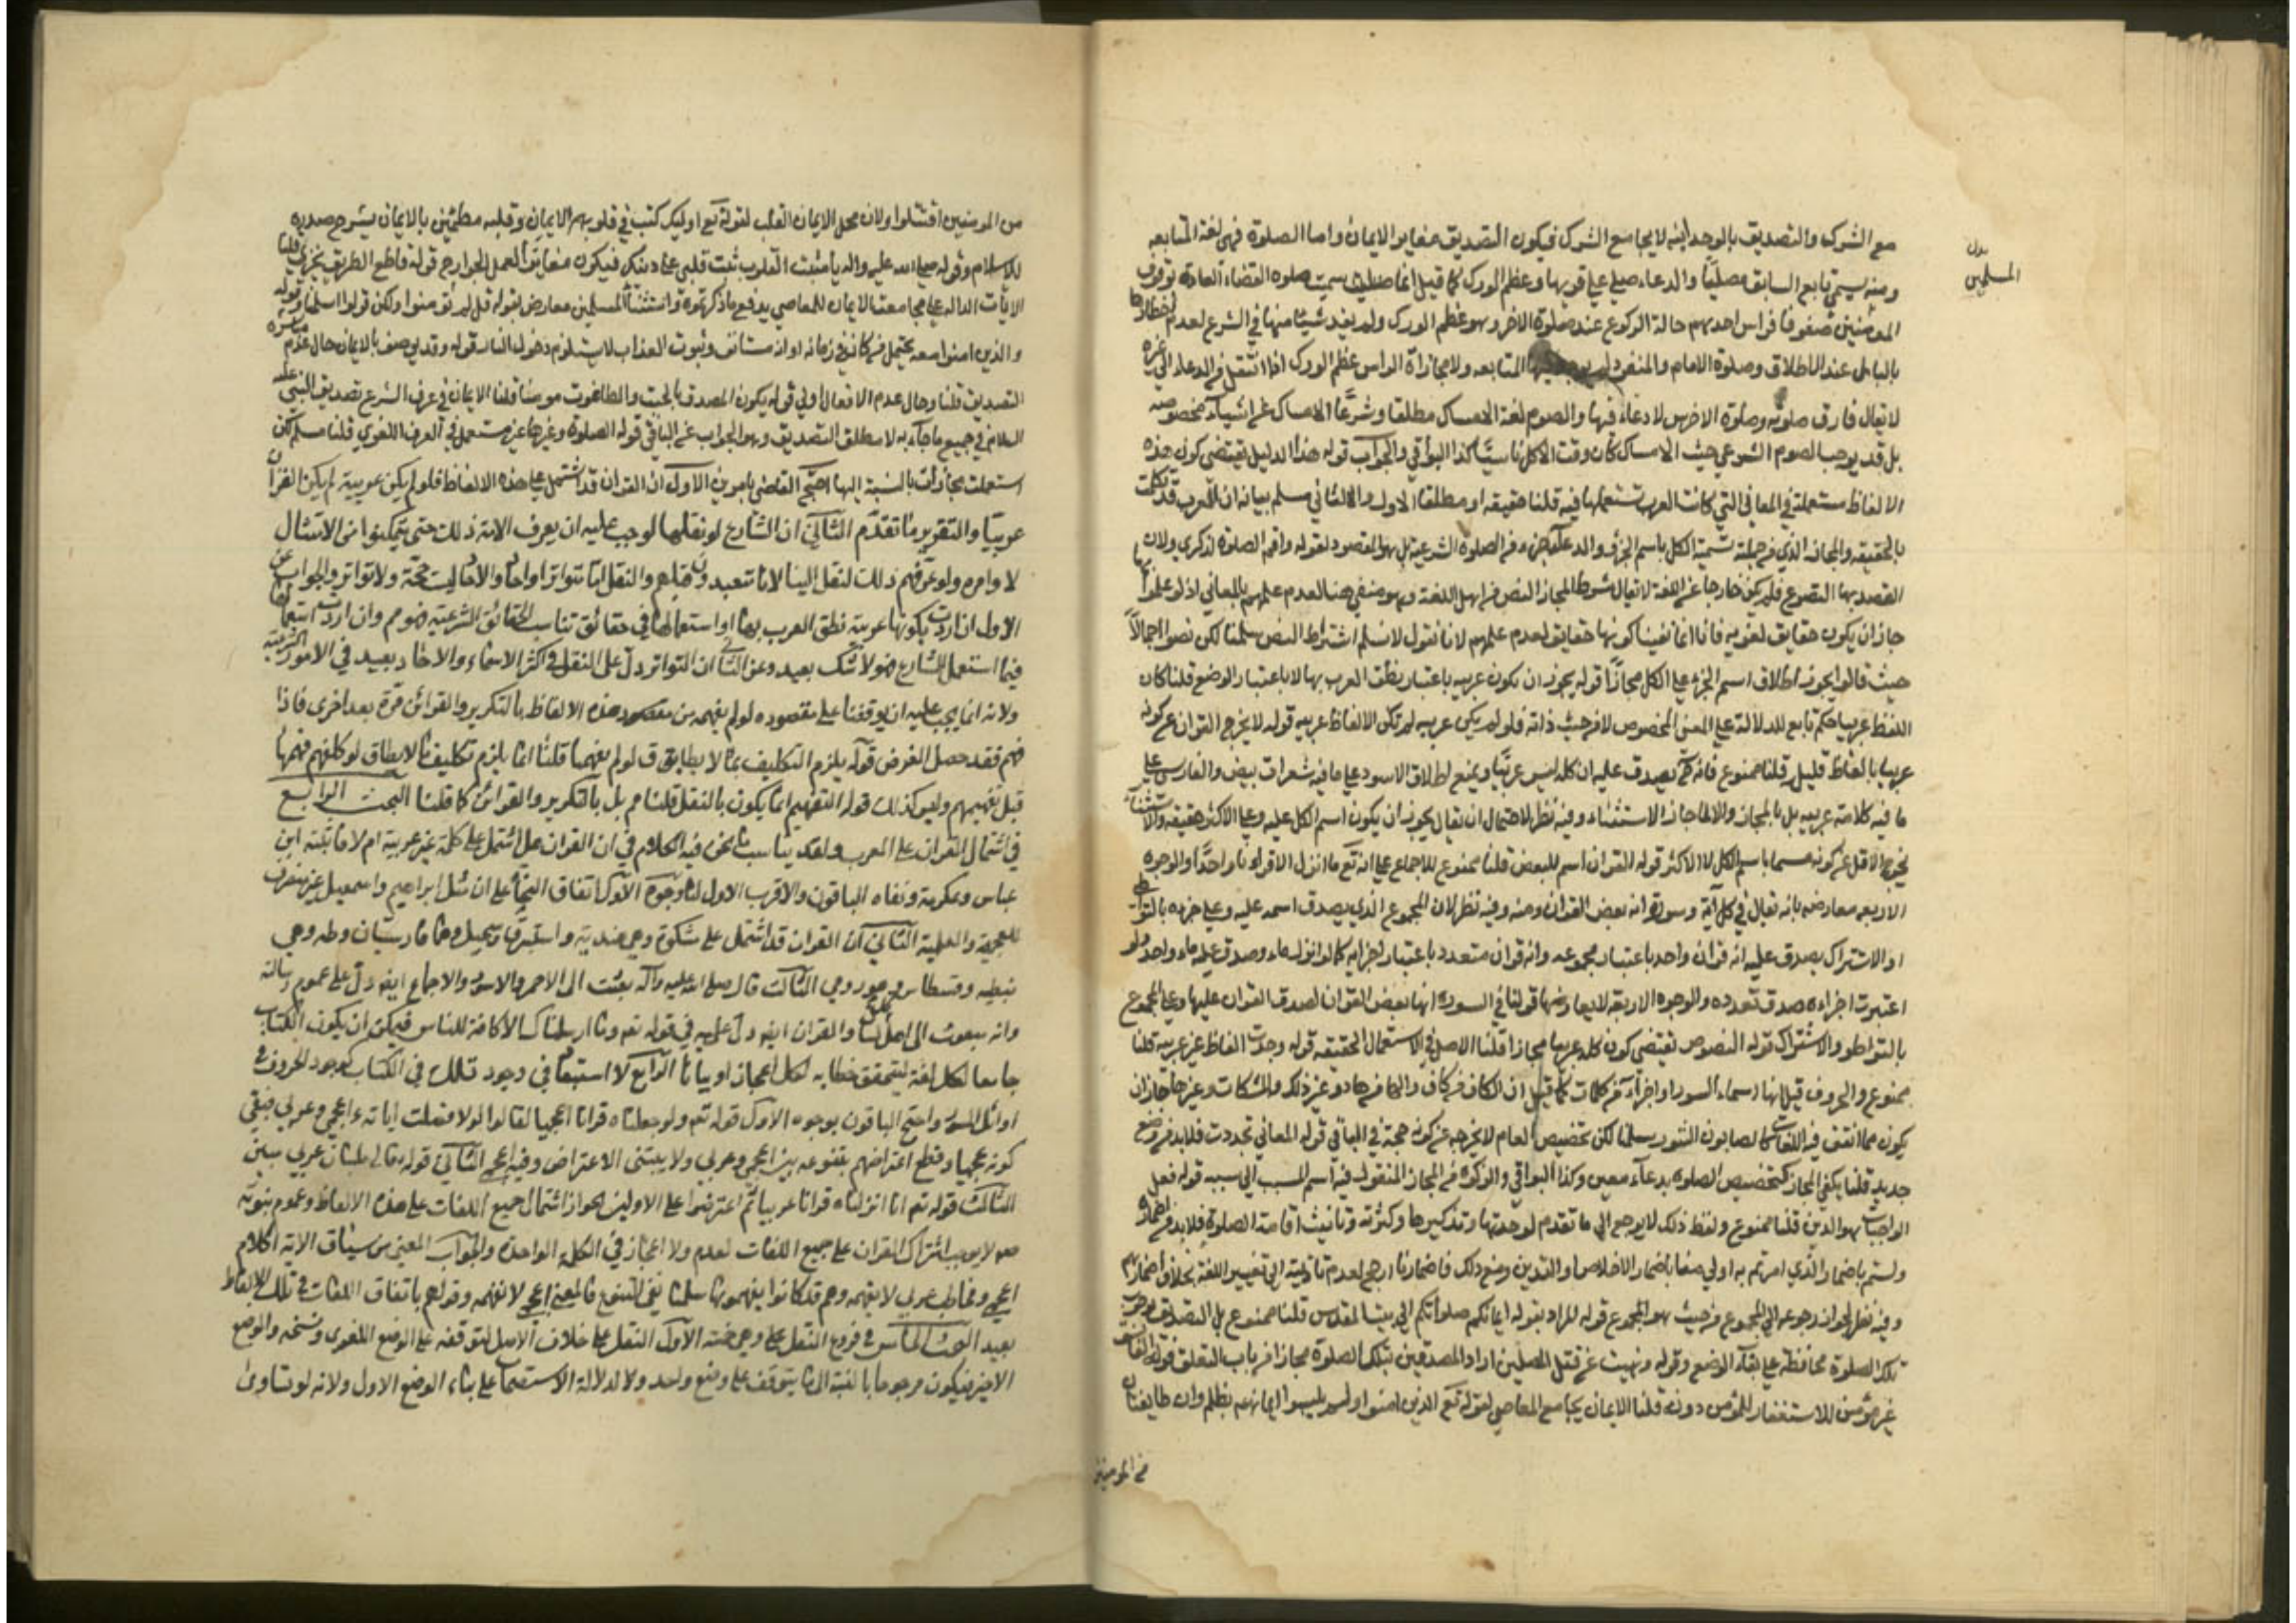 مع الشرك والتصديق بالوحدانية لا يجامع الشرك فيكون التصديق مغاير الايمان واما الصلوة فهي لغة المتابعه
بدل
المسلمين
ومنه يسمى تابع السابق مصليا والدعاء صلى على قربها وعظم الورك كما قيل انما سميت صلوه القضاء العادة بوقوف
المؤمنين صفوفا فراس احدهم حالة الركوع عند صلوة الاخر وهو عظم الورك ولم يفد شيئا منها في الشرع لعدم اخطارها
بالبال عند الاطلاق وصلوة الامام والمنفرد لم يوجد فيها المتابعه ولا محاذاة الراس عظم الورك اذا انتقل من الدعاء الى غيره
لا يقال فارق صلوته وصلوة الاخرس لا دعاء فيها والصوم لغة الامساك مطلقا وشرعا الامساك عن اشياء مخصوصه
بل قد يوجب الصوم الشرعي حيث الامساك كان وقت الاكل ناسيا كذا البواقي والجواب قوله هذا الدليل يقتضي كون هذه
الالفاظ مستعملة في المعاني التي كانت العرب تستعملها فيه قلنا حقيقه او مطلقا الاول والثاني مسلم بيانه ان العرب قد تكلمت
بالحقيقه والمجاز الذي من جملته تسمية الكل باسم الجزء والدعاء جزء من الصلوة الشرعية بل هو المقصود لقوله واقم الصلوة لذكري ولان
القصد بها التضرع فلم يكن خارجا عن اللغة لا يقال شرط المجاز النص من اهل اللغة وهو منفي هنا لعدم علمهم بالمعاني اذ لو علموا بها
جاز ان يكون حقايق لغويه فانا انما نفينا كونها حقايق لعدم علمهم لانا نقول لا نسلم اشتراط النص سلمنا لكن نصوا اجمالا
حيث قالوا يجوز اطلاق اسم الجزء على الكل مجازا قوله يجوز ان يكون عربيه باعتبار نطق العرب بها لا باعتبار الوضع قلنا كان
اللفظ عربيا حكم تابع للدلالة على المعنى المخصوص لا من حيث ذاته فلو لم يكن عربيه لم تكن الالفاظ عربيه قوله لا يخرج القران عن كونه
عربيا بالفاظ قليله قلنا ممنوع فانه يصدق عليه ان كله ليس عربيا ويمنع اطلاق الاسود على ما فيه شعرات بيض والفارسي على
ما فيه كلامه عربيه بل بالمجاز والا لما جاز الاستثناء وفيه نظر لاحتمال ان يقال يجوز ان يكون اسم الكل عليه وعلى الاكثر حقيقه والاستثناء
يخرج الاقل عن كونه مسما باسم الكل لا الاكثر قوله القران اسم للبعض قلنا ممنوع للاجماع على انه تع ما انزل الا قرانا واحدا والوجوه
الاربعه معارضه بانه يقال في كل آية وسورة انه بعض القران ومنه وفيه نظر لان المجموع الذي يصدق اسمه عليه وعلى جزءه بالتواطي
او الاشتراك يصدق عليه انه قران واحد باعتبار مجموعه وانه قران متعدد باعتبار اجزايه كما لو انزل ماء وصدق عليه ماء واحد ولو
اعتبرت اجزاءه صدق تعدده والوجوه الاربعة لا يعارضها قولنا في السوره انها بعض القران لصدق القران عليها وعلى المجموع
بالتواطو والاشتراك قوله النصوص تقتضي كون كله عربيا مجازا قلنا الاصل في الاستعمال الحقيقه قوله وجدت الفاظ غير عربيه قلنا
ممنوع والحروف قيل انها اسماء السور او اجزاء من كلمات كما قيل ان الكاف من كاف والها من هاد وغير ذلك والمشكات وغيرها جاز ان
يكون مما اتفق فيه اللغات كالصابون التنور سلمنا لكن تخصيص العام لا يخرجه عن كونه حجة في الباقي قوله المعاني تجددت فلا بد من وضع
جديد قلنا يكفي المجاز كتخصيص الصلوه بدعاء معين وكذا البواقي والزكوه من المجاز المنقول فيه اسم المسبب الى سببه قوله فعل
الواجبات هو الدين قلنا ممنوع ولفظ ذلك لا يرجع الى ما تقدم لوحدتها وتذكيرها وكثرته وتانيث اقامة الصلوة فلا بد من اضمار
ولستم باضمار الذي امرتم به اولى منا باضمار الاخلاص او التدين ومع ذلك فاضمارنا ارجح لعدم تاديته الى تغيير اللغة بخلاف اضماركم
وفيه نظر لجواز رجوعه الى المجموع من حيث هو المجموع قوله المراد بقوله ايمانكم صلواتكم الى بيت المقدس قلنا ممنوع بل التصديق بوجوب
تلك الصلوة محافظة على بقاء الوضع وقوله ونهيت عن قتل المصلين اراد المصدقين بتلك الصلوة مجازا من باب التعلق قوله الفاسق
غير مؤمن للاستغفار للمؤمن دونه قلنا الايمان يجامع المعاصي لقوله تع الذين امنوا ولم يلبسوا ايمانهم بظلم وان طايفتان
من المومنين
من المومنين اقتتلوا ولان محل الايمان القلب لقوله تع اوليك كتب في قلوبهم الايمان وقلبه مطمئن بالايمان يشرح صدره
للاسلام وقوله صلى الله عليه واله يا مثبت القلوب ثبت قلبي على دينك فيكون مغايرا لعمل الجوارح قوله قاطع الطريق يخزى قلنا
الايات الداله على مجامعة الايمان للمعاصي يدفع ما ذكرتموه واستثناء المسلمين معارض بقوله قل لم تؤمنوا ولكن قولوا اسلمنا وقوله
والذين امنوا معه يحتمل من كان في زمانه او انه مستانف وثبوت العذاب لا يستلزم دخول النار قوله وقد يوصف بالايمان حال عدم مباشرة
التصديق قلنا وحال عدم الافعال اولى قوله يكون المصدق بالجبت والطاغوت مومنا قلنا الايمان في عرف الشرع تصديق النبي عليه
السلام في جميع ما جاء به لا مطلق التصديق وهو الجواب عن الباقي قوله الصلوة وغيرها غير مستعمل في العرف اللغوي قلنا مسلم لكن
استعملت مجازات بالنسبة اليها احتج القاضي بامرين الاول ان القران قد اشتمل على هذه الالفاظ فلو لم يكن عربية لم يكن القران
عربيا والتقرير ما تقدم الثاني ان الشارع لو نقلها لوجب عليه ان يعرف الامة ذلك حتى يتمكنوا من الامتثال
لاوامره ولو عرفهم ذلك لنقل الينا لانا متعبدون مثلهم والنقل اما متواترا او احادا والاحاد ليست حجة ولا تواتر والجواب عن
الاول ان اردت بكونها عربية نطق العرب بها او استعمالها في حقائق تناسب الحقائق الشرعية فهو م وان اردت استعمالها
فيما استعمل الشارع فهو لا شك بعيد وعن الثاني ان التواتر دل على النقل في اكثر الاسماء والاحاد يفيد في الامور الشرعية
ولانه انما يجب عليه ان يوقفنا على مقصوده لو لم يفهم من مقصود هذه الالفاظ بالتكرير والقرائن مرة بعد اخرى فاذا
فهم فقد حصل الغرض قوله يلزم التكليف بما لا يطاق لو لم يفهمها قلنا انما يلزم تكليف ما لا يطاق لو كلفهم فهمها
قبل تفهيمهم وليس كذلك قوله التفهيم انما يكون بالنقل قلنا م بل بالتكرير والقرائن كما قلنا البحث الرابع
في اشتمال القران على المعرب ولقد يناسب ما نحن فيه الكلام في ان القران هل اشتمل على كلمة غير عربية ام لا فاثبته ابن
عباس وعكرمة ونفاه الباقون والاقرب الاول لنا وجوه الاول اتفاق النحاة على ان مثل ابراهيم واسمعيل غير منصرف
للعجمة والعلمية الثاني ان القران قد اشتمل على مشكوة وهي هندية واستبرق وسجيل وهما فارسيتان وطه وهي
نبطيه وقسطاس وهو رومي الثالث قال صلى الله عليه وآله بعثت الى الاحمر والاسود والاجماع ايضا دل على عموم رسالته
وانه مبعوث الى اهل كل لسان والقران ايضا دل عليه في قوله تعه وما ارسلناك الا كافة للناس فيمكن ان يكون الكتاب
جامعا لكل لغة ليتحقق خطابه لكل اعجازا وبيانا الرابع لا استبعاد في وجود تلك في الكتاب كوجود الحروف في
اوائل السور واحتج الباقون بوجوه الاول قوله تعه ولو جعلناه قرانا اعجميا لقالوا لولا فصلت اياته ءاعجمي وعربي فينفي
كونه عجميا وقطع اعتراضهم بتنوعه بين اعجمي وعربي ولا ينتفي الاعتراض وفيه اعجمي الثاني قوله تعالى بلسان عربي مبين
الثالث قوله تعه انا انزلناه قرانا عربيا ثم اعترضوا على الاولين بجواز اشتمال جميع اللغات على هذه الالفاظ وعموم نبوته
صم لا يوجب اشتراك القران على جميع اللغات لعدم ولا اعجاز في الكلمة الواحدة والجواب المعنى من سياق الاية اكلام
اعجمي ومخاطب عربي لا يفهمه وهم قد كانوا يفهمونها سلمنا نفي التنوع فالمعنى اعجمي لا نفهمه وقولهم باتفاق اللغات في تلك الالفاظ
بعيد البحث الخامس في فروع النقل على وهي خمسة الاول النقل على خلاف الاصل لتوقفه على الوضع اللغوي ونسخه والوضع
الاخير فيكون مرجوحا بالنسبة الى ما يتوقف على وضع واحد ولا لدلالة الاستصحاب على بقاء الوضع الاول ولانه لو تساوى